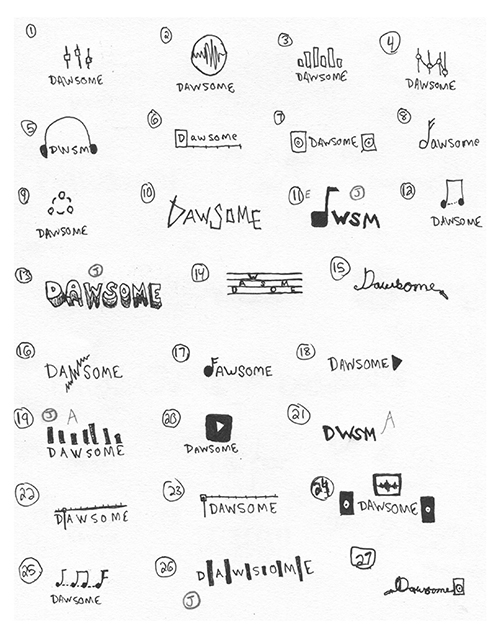 1
DAWSOME
2
DAWSOME
3
DAWSOME
4
DAWSOME
5
DWSM
6
Dawsome
7
DAWSOME
8
dawsome
9
DAWSOME
10
DAWSOME
11 E J
dWSM
12
DAWSOME
13 J
DAWSOME
14
DAWSOME
15
Dawsome
16
DAWSOME
17
AWSOME
18
DAWSOME
19 J A
DAWSOME
20
DAWSOME
21 A
DWSM
22
DAWSOME
23
DAWSOME
24
DAWSOME
25
DAWSOME
26
DAWSOME
J
27
Dawsome